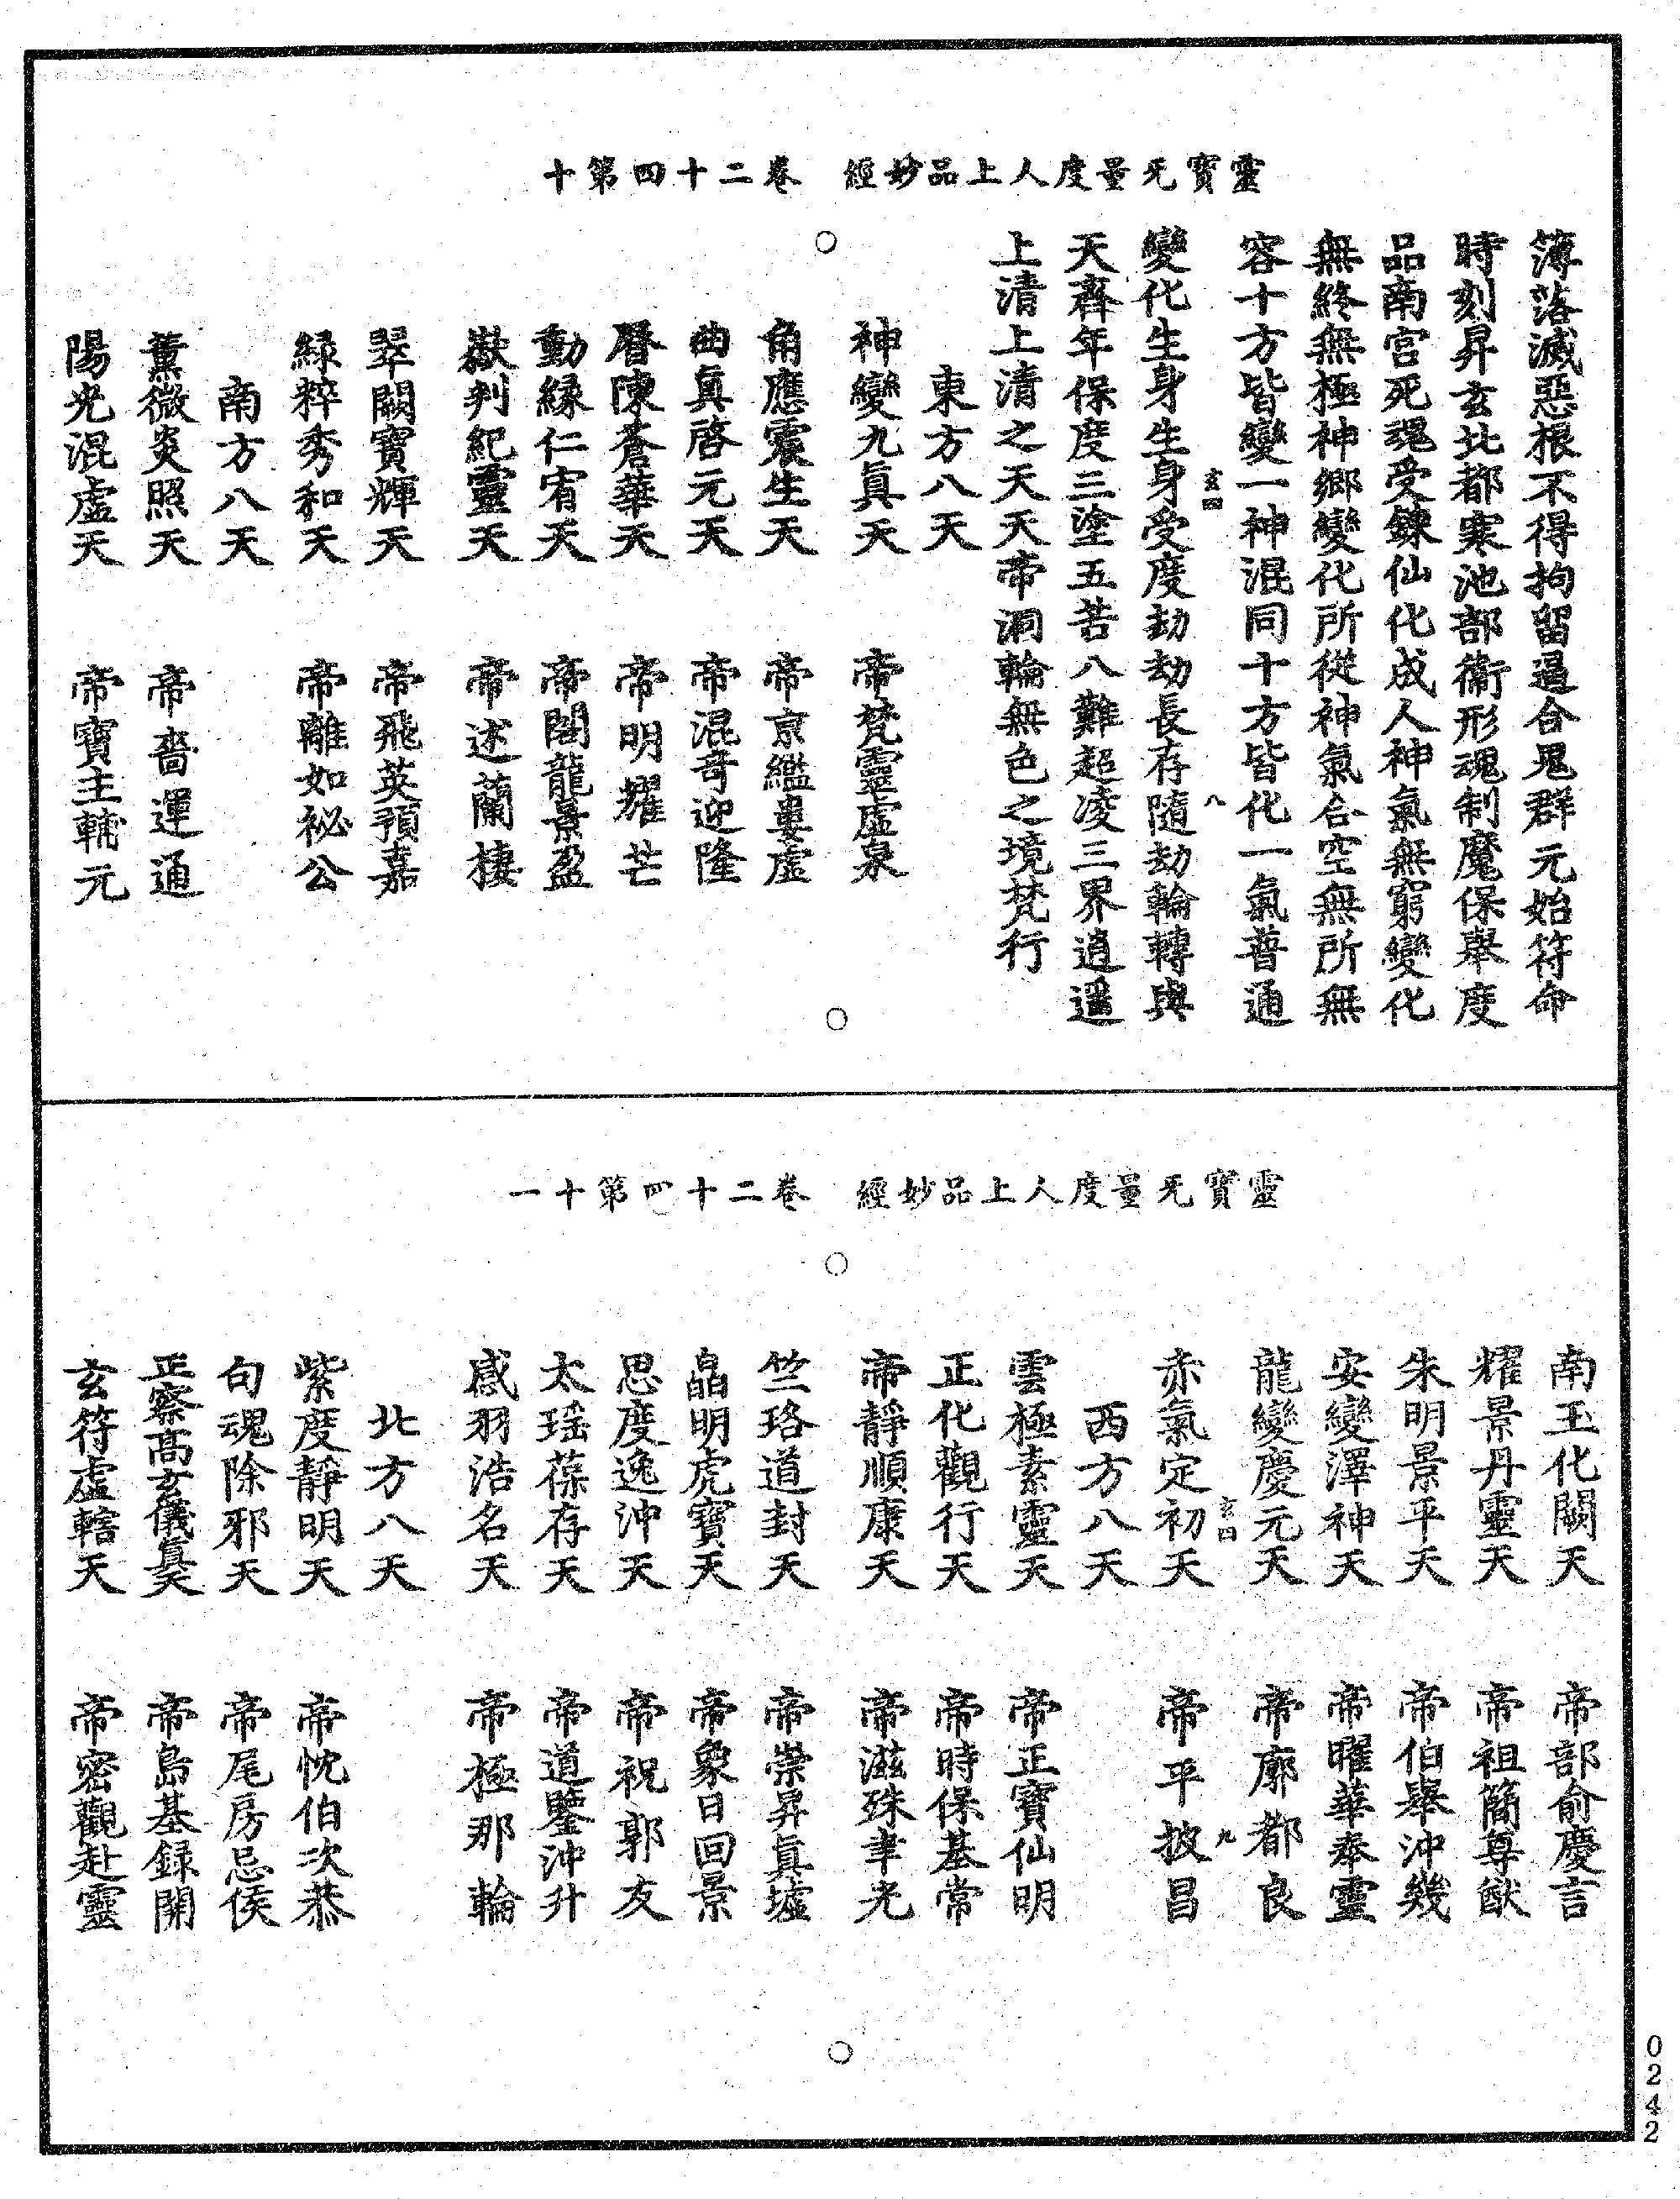 靈寶无量度人上品妙經　卷二十四第十
簿落滅惡根不得拘留逼合鬼群元始符命
時刻昇玄北都寒池部衛形魂制魔保舉度
品南宮死魂受鍊仙化成人神氣無窮變化
無終無極神鄉變化所從神氣合空無所無
容十方皆變一神混同十方皆化一氣普通
玄四　八
變化生身生身受度劫劫長存隨劫輪轉與
天齊年保度三塗五苦八難超凌三界逍遥
上清上清之天天帝洞輪無色之境梵行
東方八天
神變九真天　帝梵靈虛泉
角應震生天　帝京鑑婁虛
曲真啓元天　帝混奇迎隆
曆陳蒼華天　帝明耀芒
動緣仁宥天　帝閣龍景盈
嶽判紀靈天　帝述蘭棲
翠闕寶輝天　帝飛英預嘉
綠粹秀和天　帝離如祕公
南方八天
薰微炎照天　帝嗇運通
陽光混虛天　帝寶主輔元
靈寶无量度人上品妙經　卷二十四第十一
南玉化闕天　帝部俞慶言
耀景丹靈天　帝祖簡尊猷
朱明景平天　帝伯舉沖幾
安變澤神天　帝曜華奉靈
龍變慶元天　帝廓都良
玄四　九
赤氣定初天　帝平披昌
西方八天
雲極素靈天　帝正寶仙明
正化觀行天　帝時保基常
帝靜順康天　帝滋殊聿光
竺珞道封天　帝崇昇真墟
皛明虎寶天　帝象日回景
思度逸沖天　帝祝郭友
太瑶葆存天　帝道鑒沖升
感羽浩名天　帝極那輪
北方八天
紫度靜明天　帝忱伯次恭
句魂除邪天　帝尾房忌侯
正察高玄儀真天　帝島基録開
玄符虛轄天　帝密觀赴靈
0242